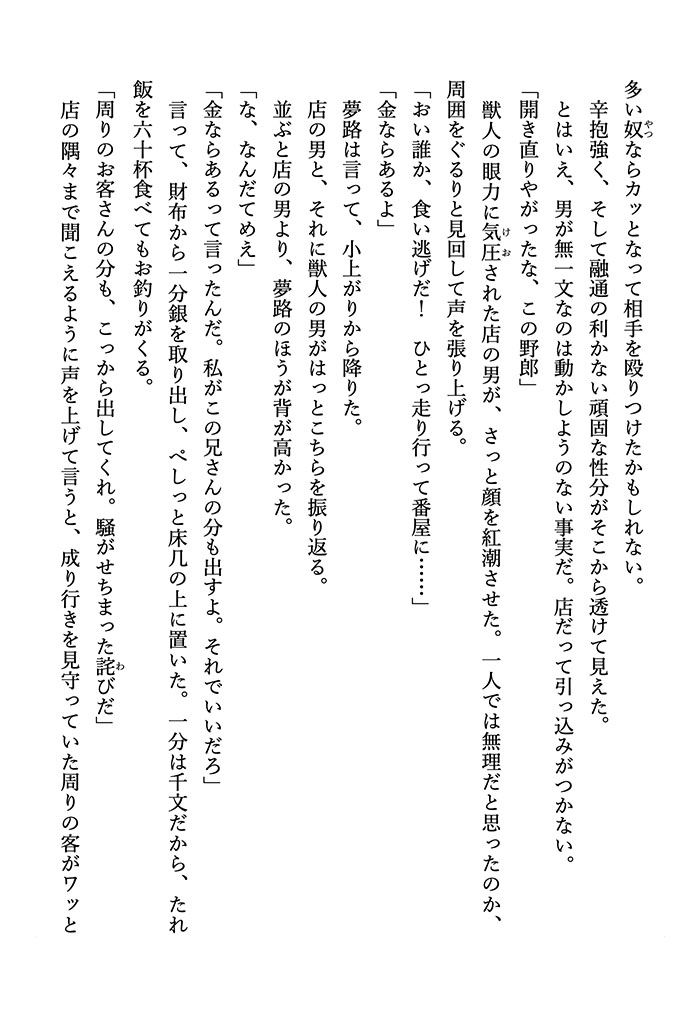 多い奴ならカッとなって相手を殴りつけたかもしれない。
辛抱強く、そして融通の利かない頑固な性分がそこから透けて見えた。
とはいえ、男が無一文なのは動かしようのない事実だ。店だって引っ込みがつかない。
「開き直りやがったな、この野郎」
獣人の眼力に気圧された店の男が、さっと顔を紅潮させた。一人では無理だと思ったのか、
周囲をぐるりと見回して声を張り上げる。
「おい誰か、食い逃げだ！　ひとっ走り行って番屋に……」
「金ならあるよ」
夢路は言って、小上がりから降りた。
店の男と、それに獣人の男がはっとこちらを振り返る。
並ぶと店の男より、夢路のほうが背が高かった。
「な、なんだてめえ」
「金ならあるって言ったんだ。私がこの兄さんの分も出すよ。それでいいだろ」
言って、財布から一分銀を取り出し、ぺしっと床几の上に置いた。一分は千文だから、たれ
飯を六十杯食べてもお釣りがくる。
「周りのお客さんの分も、こっから出してくれ。騒がせちまった詫びだ」
店の隅々まで聞こえるように声を上げて言うと、成り行きを見守っていた周りの客がワッと